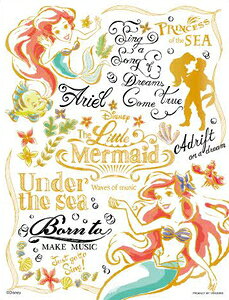 PRINCESS
of the
SEA
Sing
a
Song
of
Dreams
Come True
Ariel
Disney
The Little
Mermaid
Adrift
on a dream
Under
the sea
Waves of music
Born to
MAKE MUSIC
Just go to
Sing!
©Disney